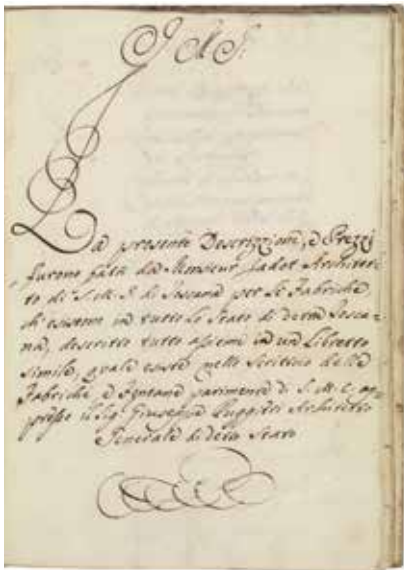 J. M. J.
La presente Descrizzione, e Prezzi
furono fatti da Monsieur Jadot Architet-
to di S. M. I. di Toscana per le Fabriche,
ch'esistono in tutto lo Stato di detta Tosca-
na, descritto tutto assieme in un Libretto
simile, quale esiste nello Scrittoio delle
Fabriche e Fontane parimente di S. M. C. ap-
presso il Sig. Giuseppe Ruggieri Architetto
Generale di detto Stato